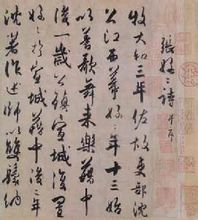 張好々詩 并序
牧大和三年佐故吏部沈
公江西幕好々年十三始
以善歌舞來樂籍中
後一歲公鎮宣城復置
好々於宣城籍中後二年
沈著作述師以雙鬟納